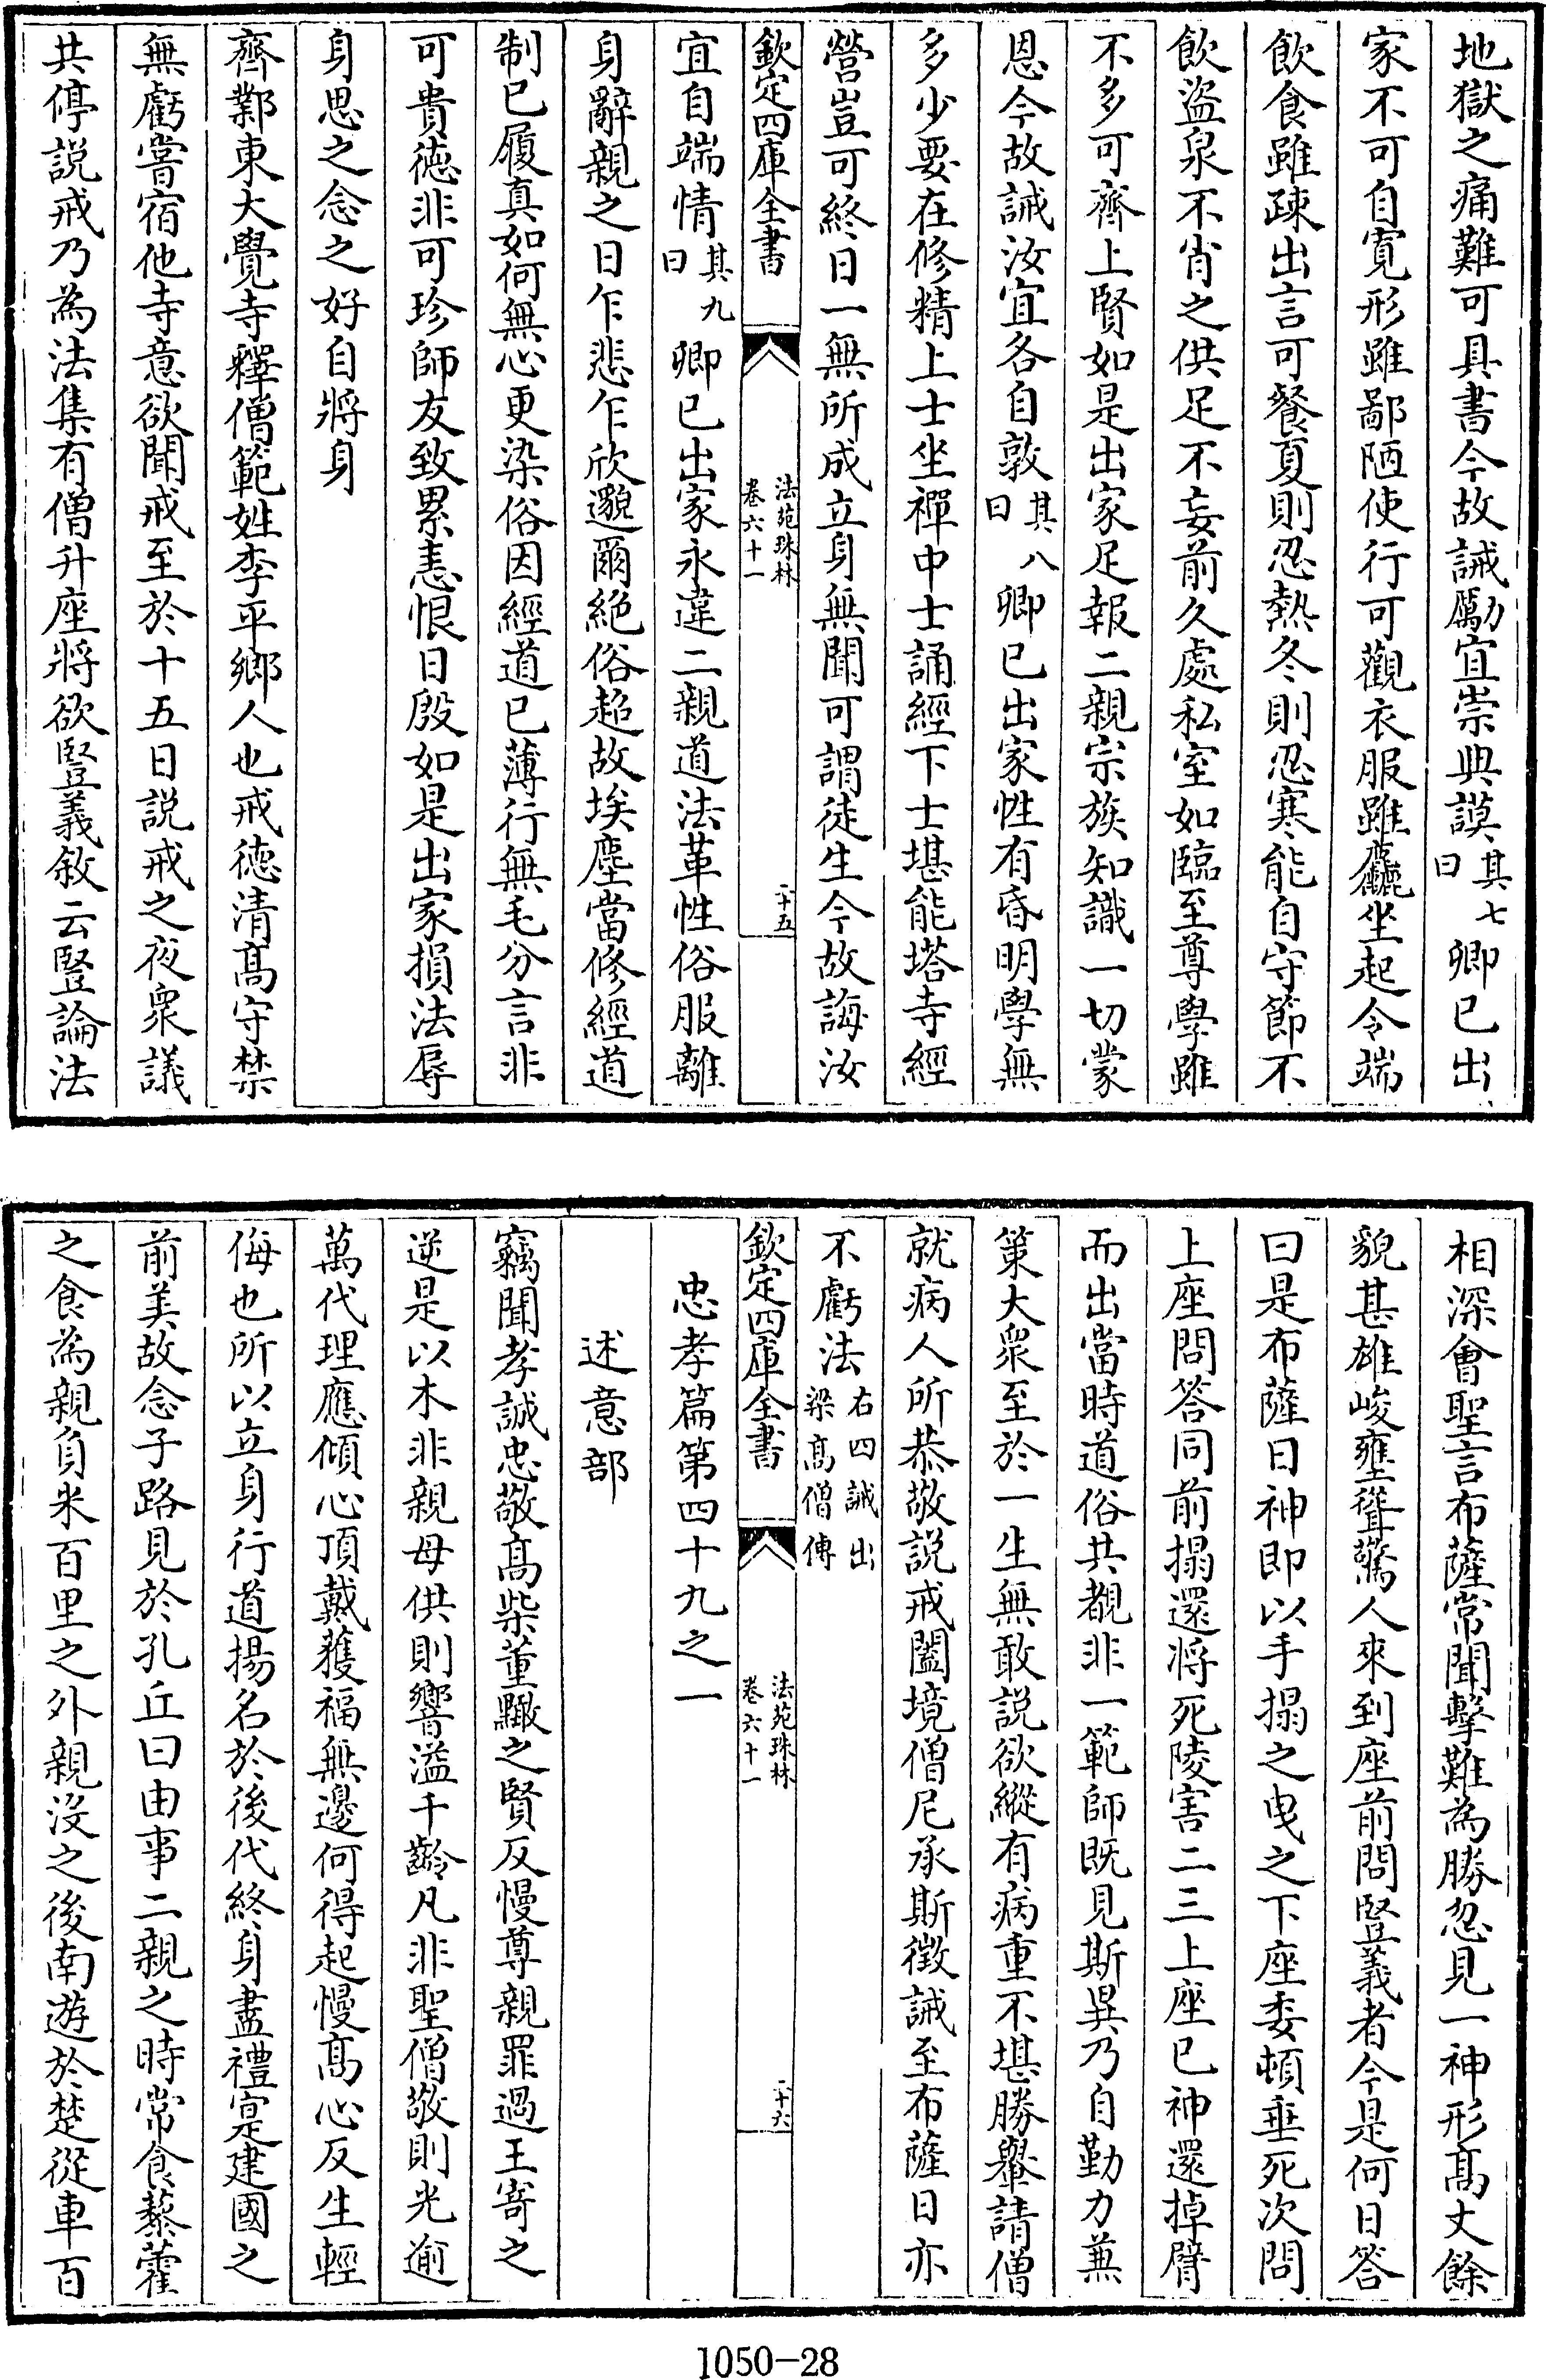 地獄之痛難可具書今故誡勵宜崇典謨其七曰卿已出
家不可自寛形雖鄙陋使行可觀衣服雖麤坐起令端
飲食雖疎出言可餐夏則忍熱冬則忍寒能自守節不
飲盜泉不肖之供足不妄前久處私室如臨至尊學雖
不多可齊上賢如是出家足報二親宗族知識一切蒙
恩今故誡汝宜各自敦其八曰卿已出家性有昏明學無
多少要在修精上士坐禪中士誦經下士堪能塔寺經
營豈可終日一無所成立身無聞可謂徒生今故誨汝
欽定四庫全書
法苑珠林
卷六十一
二十五
宜自端情其九曰卿已出家永違二親道法革性俗服離
身辭親之日乍悲乍欣邈爾絶俗超故埃塵當修經道
制已履真如何無心更染俗因經道已薄行無毛分言非
可貴徳非可珍師友致累恚恨日殷如是出家損法辱
身思之念之好自將身
齊鄴東大覺寺釋僧範姓李平鄉人也戒徳清髙守禁
無虧嘗宿他寺意欲聞戒至於十五日説戒之夜衆議
共停説戒乃為法集有僧升座將欲豎義敘云豎論法
相深會聖言布薩常聞擊難為勝忽見一神形髙丈餘
貌甚雄峻壅聳驚人來到座前問豎義者今是何日答
曰是布薩日神即以手搨之曳之下座委頓垂死次問
上座問答同前搨還將死陵害二三上座已神還掉臂
而出當時道俗共覩非一範師既見斯異乃自勤力兼
策大衆至於一生無敢説欲縱有病重不堪勝轝請僧
就病人所恭敬説戒闔境僧尼承斯徵誡至布薩日亦
不虧法右四誡出梁髙僧傳
欽定四庫全書
法苑珠林
卷六十一
二十六
忠孝篇第四十九之一
述意部
竊聞孝誠忠敬髙柴董黶之賢反慢尊親罪過王寄之
逆是以木非親母供則響溢千齡凡非聖僧敬則光逾
萬代理應傾心頂戴獲福無邊何得起慢髙心反生輕
侮也所以立身行道揚名於後代終身盡禮寔建國之
前美故念子路見於孔丘曰由事二親之時常食藜藿
之食為親負米百里之外親沒之後南遊於楚從車百
1050-28